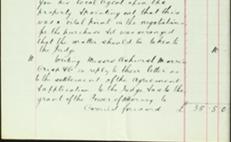 You his local Agent upon the
Property & pointing out that this
was a vital point in the negotiations
for the purchase &c was arranged
that the matter should be taken to
the Judge
Writing Messrs Ashurst Morris
Crisp & Co in reply to their letter as
to the settlement of the Agreement
& application to the Judge as to the
grant of the Power of Attorney to
Carried forward £ 35 5 0